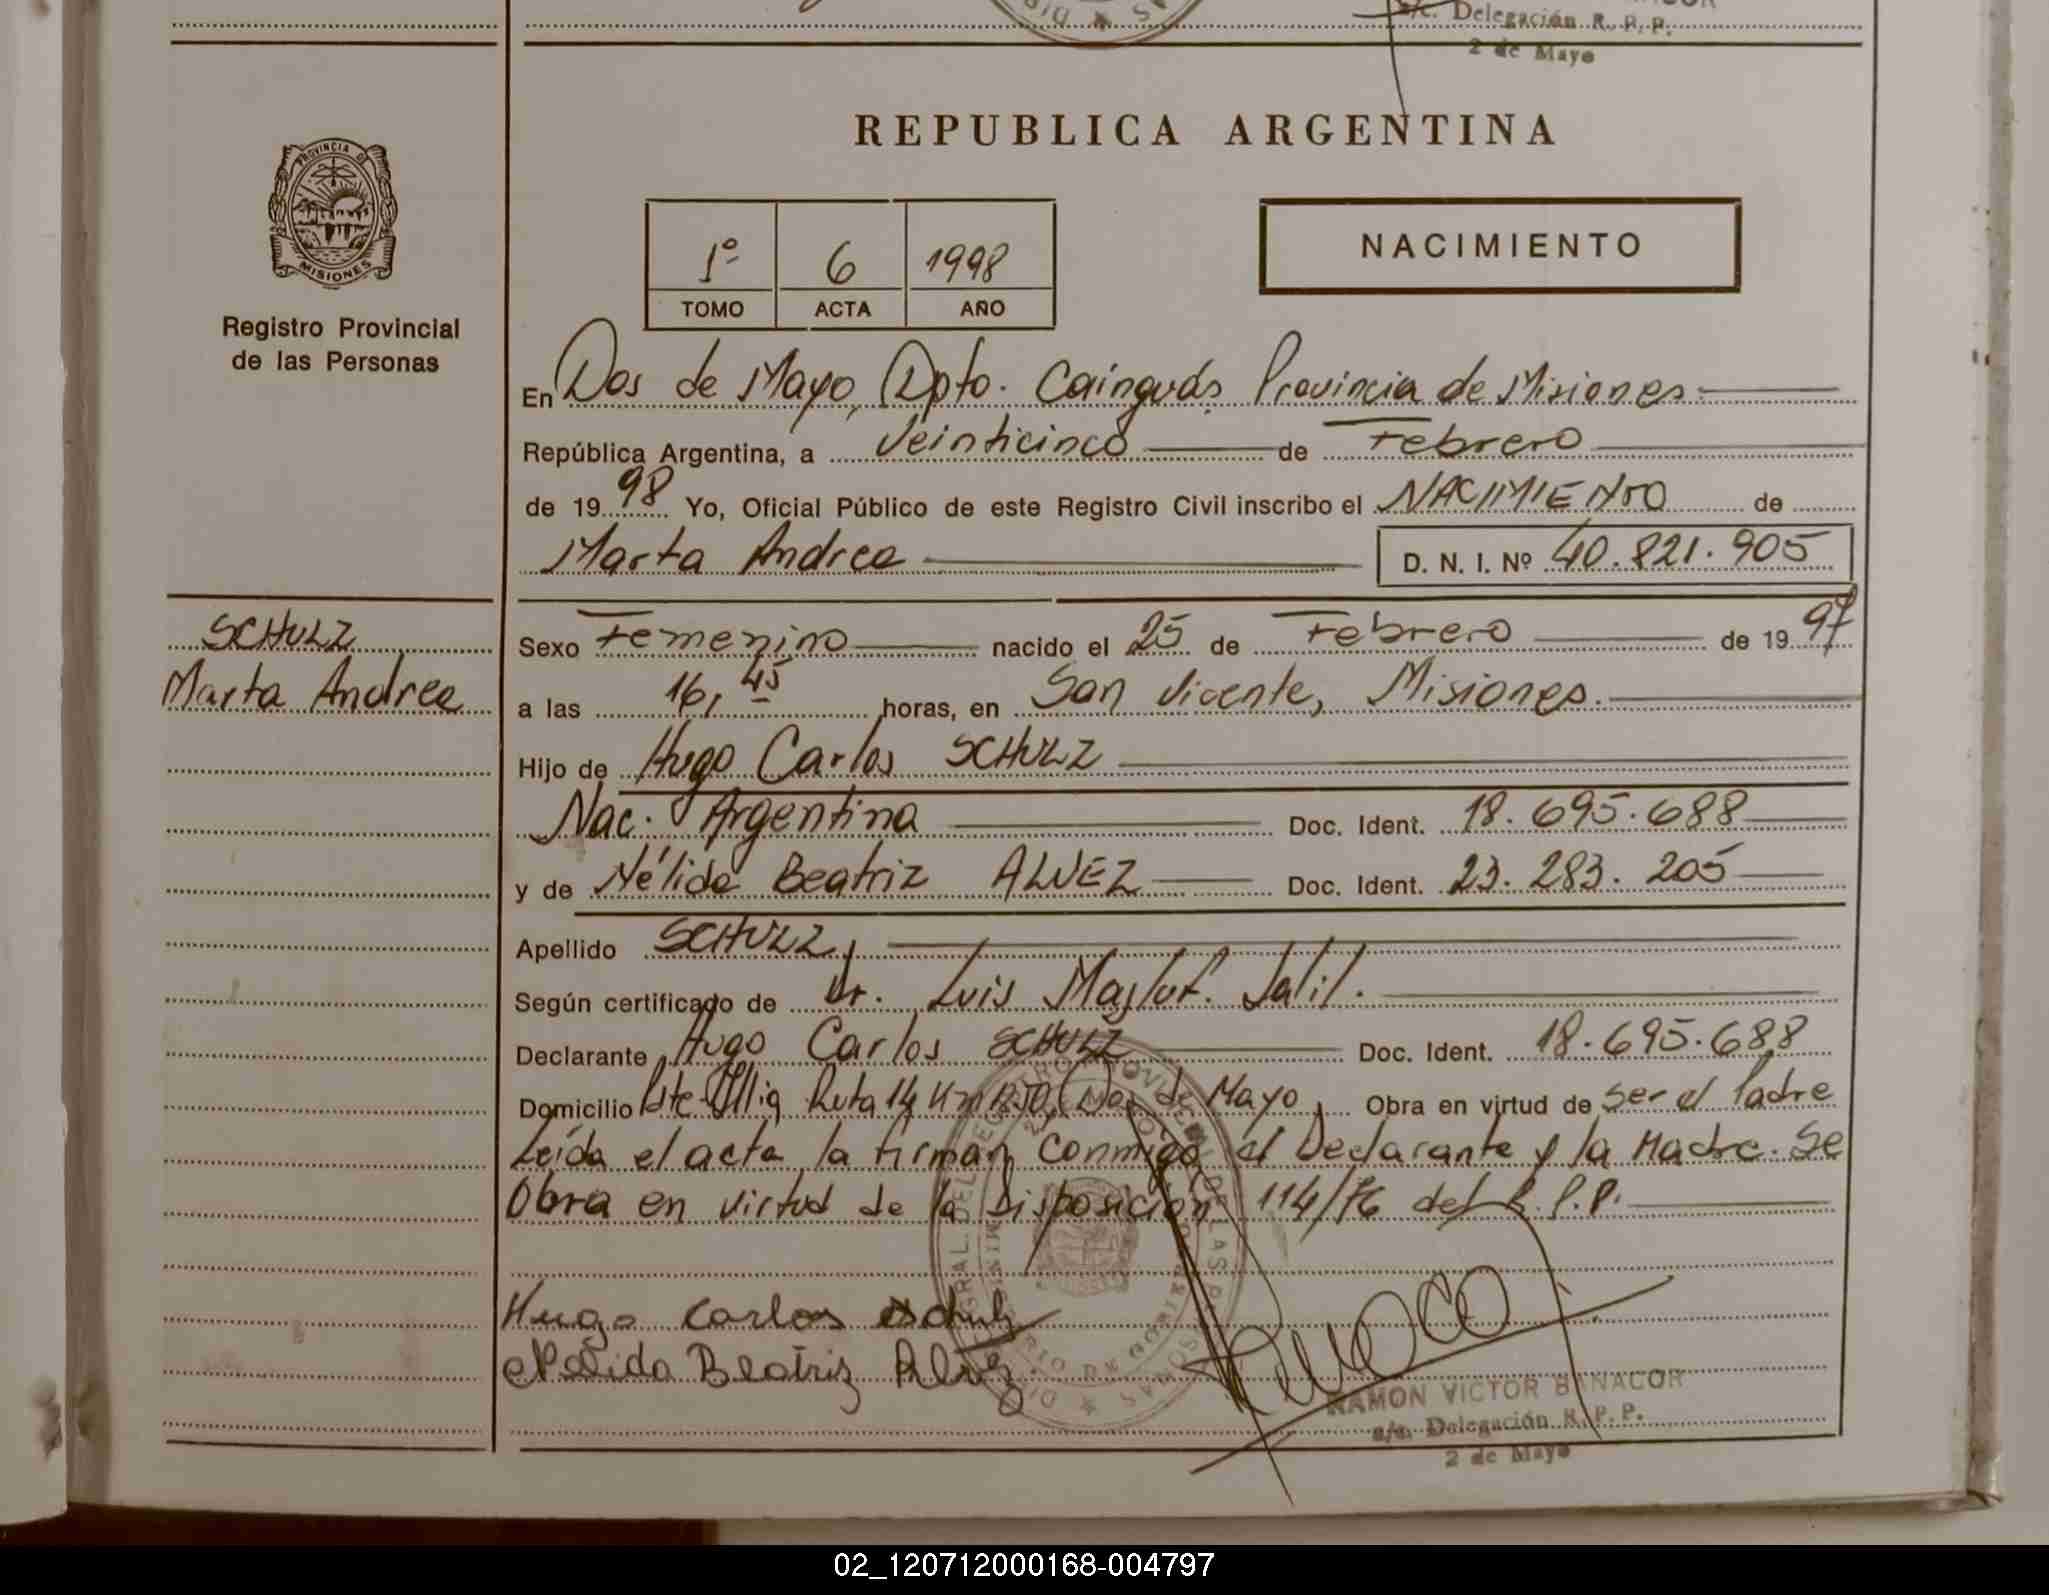 s/c. Delegación R. P. P.
2 de Mayo
REPUBLICA ARGENTINA
PROVINCIA DE
MISIONES
Registro Provincial
de las Personas
1º 6 1998
TOMO ACTA AÑO
NACIMIENTO
En Dos de Mayo, Dpto. Cainguás, Provincia de Misiones
República Argentina, a Veinticinco de Febrero
de 1998 Yo, Oficial Público de este Registro Civil inscribo el NACIMIENTO de
Marta Andrea D. N. I. Nº 40.821.905
SCHULZ
Marta Andrea
Sexo Femenino nacido el 25 de Febrero de 1997
a las 16,45 horas, en San Vicente, Misiones.
Hijo de Hugo Carlos SCHULZ
Nac. Argentina Doc. Ident. 18.695.688
y de Nélida Beatriz ALVEZ Doc. Ident. 23.283.205
Apellido SCHULZ
Según certificado de Dr. Luis Masluf. Jalil.
Declarante Hugo Carlos SCHULZ Doc. Ident. 18.695.688
Domicilio Pte. Illia Ruta 14 Km Dos de Mayo, Obra en virtud de ser el Padre
Leída el acta la firman conmigo el Declarante y la Madre. Se
Obra en virtud de la Disposición 114/76 del R.P.P.
Hugo Carlos Schulz
Nelida Beatriz Alvez
RAMON VICTOR BANACOR
s/c. Delegación R. P. P.
2 de Mayo
02_120712000168-004797